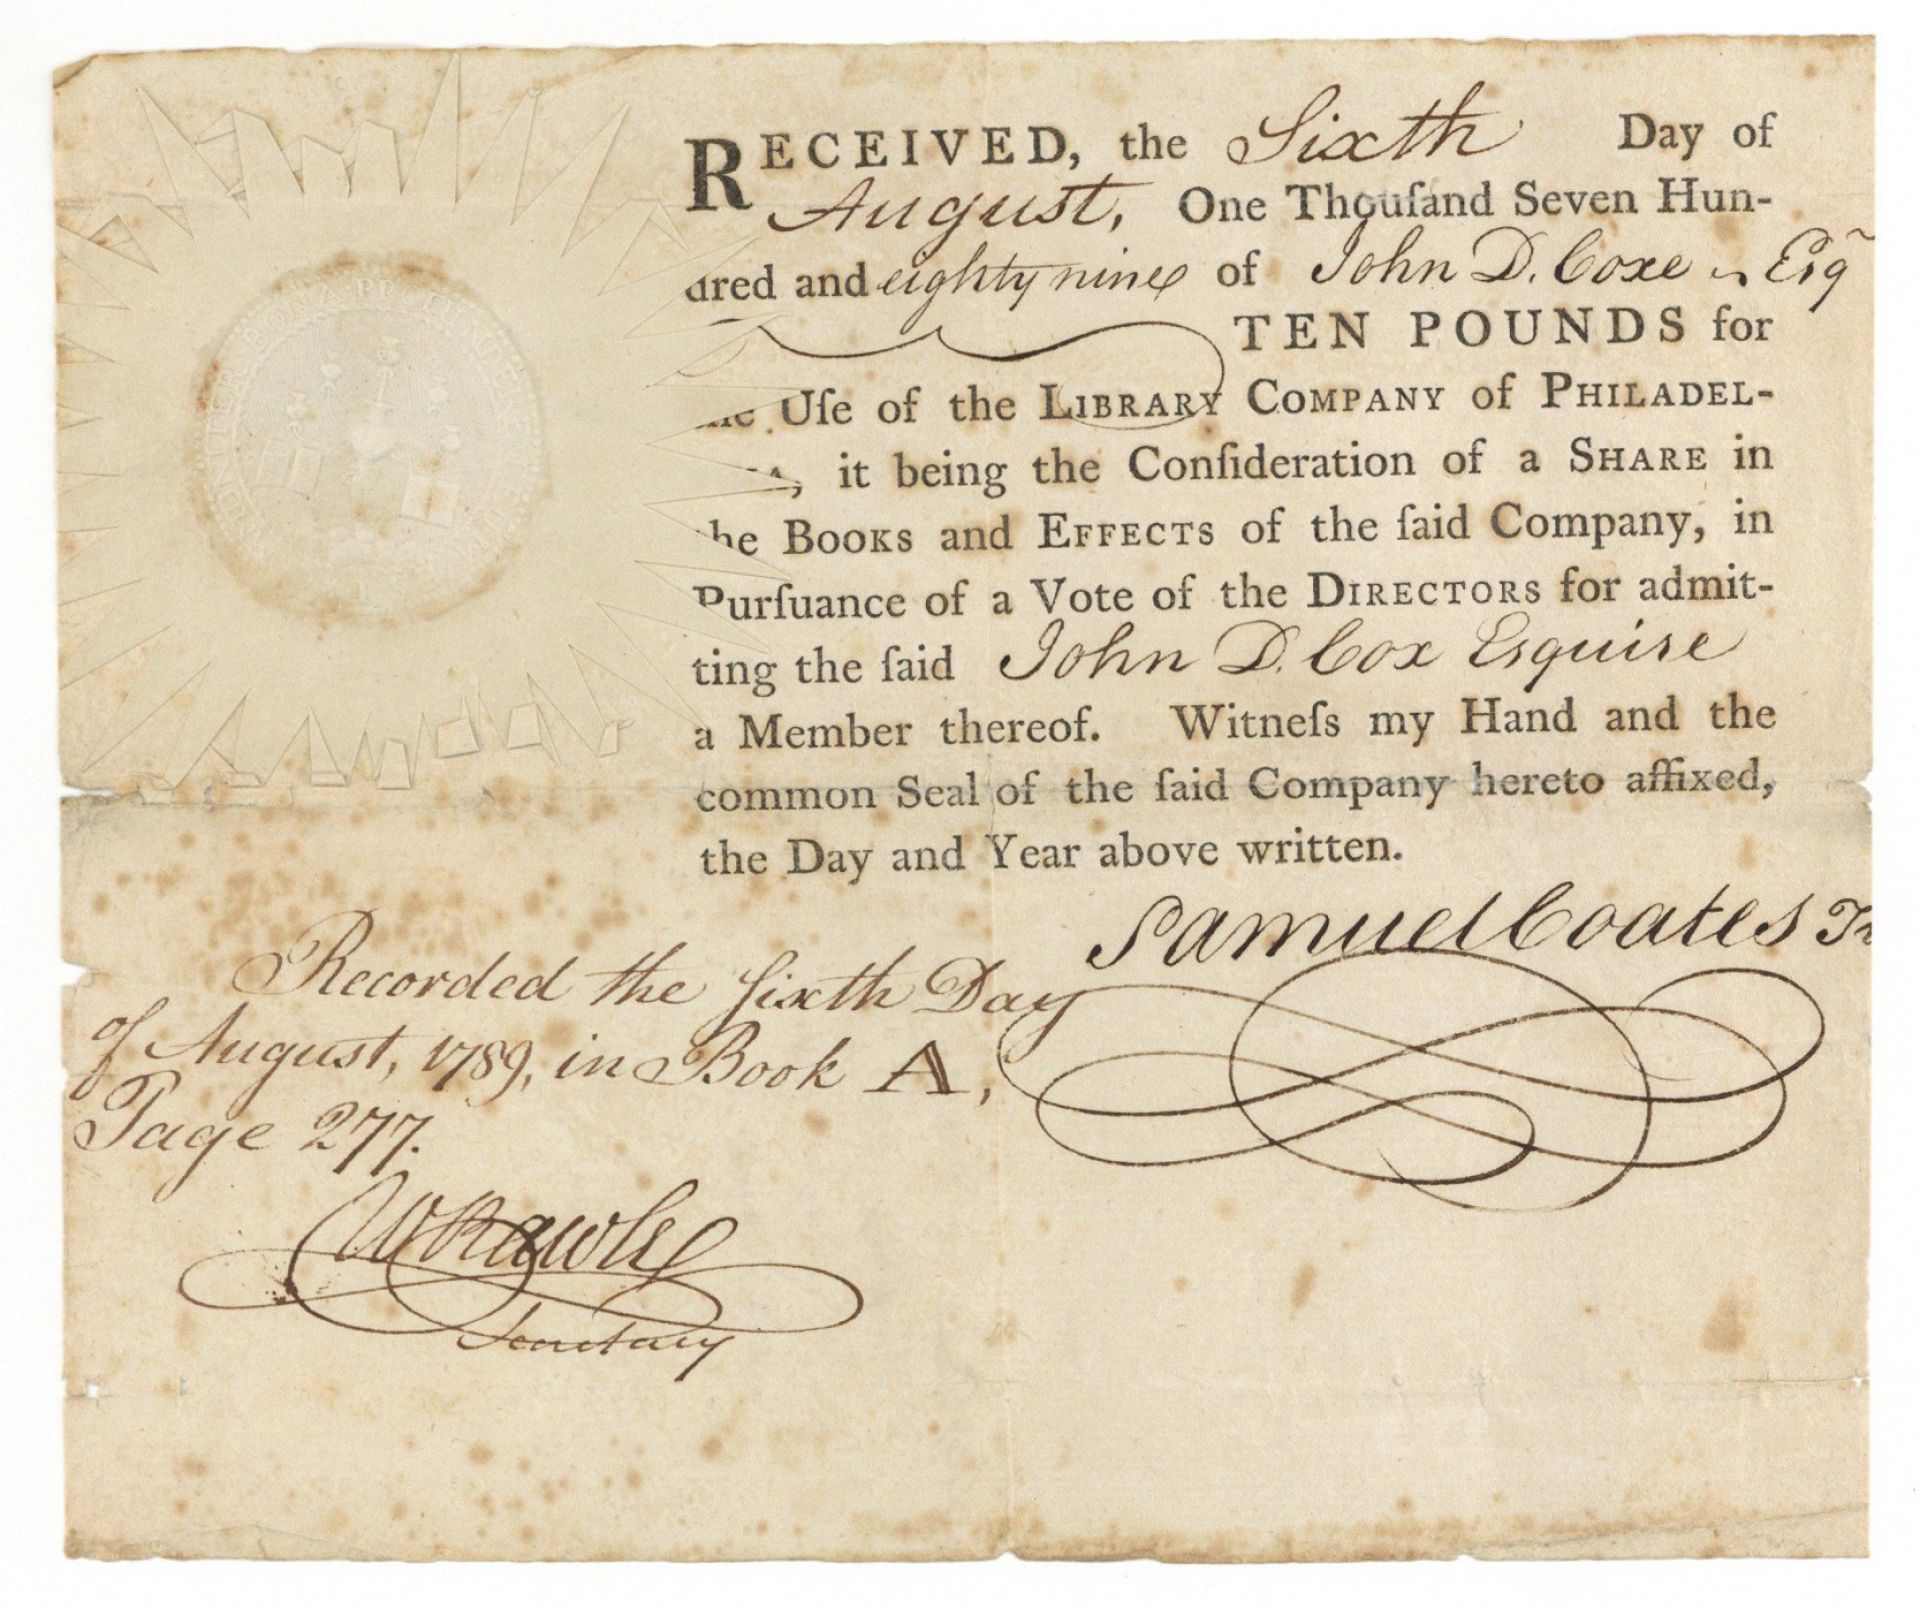 RECEIVED, the Sixth Day of
August, One Thouſand Seven Hun-
dred and eighty nine of John D. Coxe Esqr
TEN POUNDS for
the Uſe of the LIBRARY COMPANY of PHILADEL-
, it being the Conſideration of a SHARE in
the BOOKS and EFFECTS of the ſaid Company, in
Purſuance of a Vote of the DIRECTORS for admit-
ting the ſaid John D. Cox Esquire
a Member thereof. Witneſs my Hand and the
common Seal of the ſaid Company hereto affixed,
the Day and Year above written.
Samuel Coates Tr
Recorded the ſixth Day
of August, 1789, in Book A,
Page 277.
W Rawle
Secretary